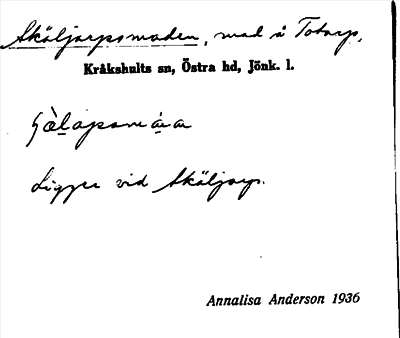 Sköljarpsmaden, mad å Totarp,
Kråkshults sn, Östra hd, Jönk. l.
Ligger vid Sköljarp.
Annalisa Anderson 1936